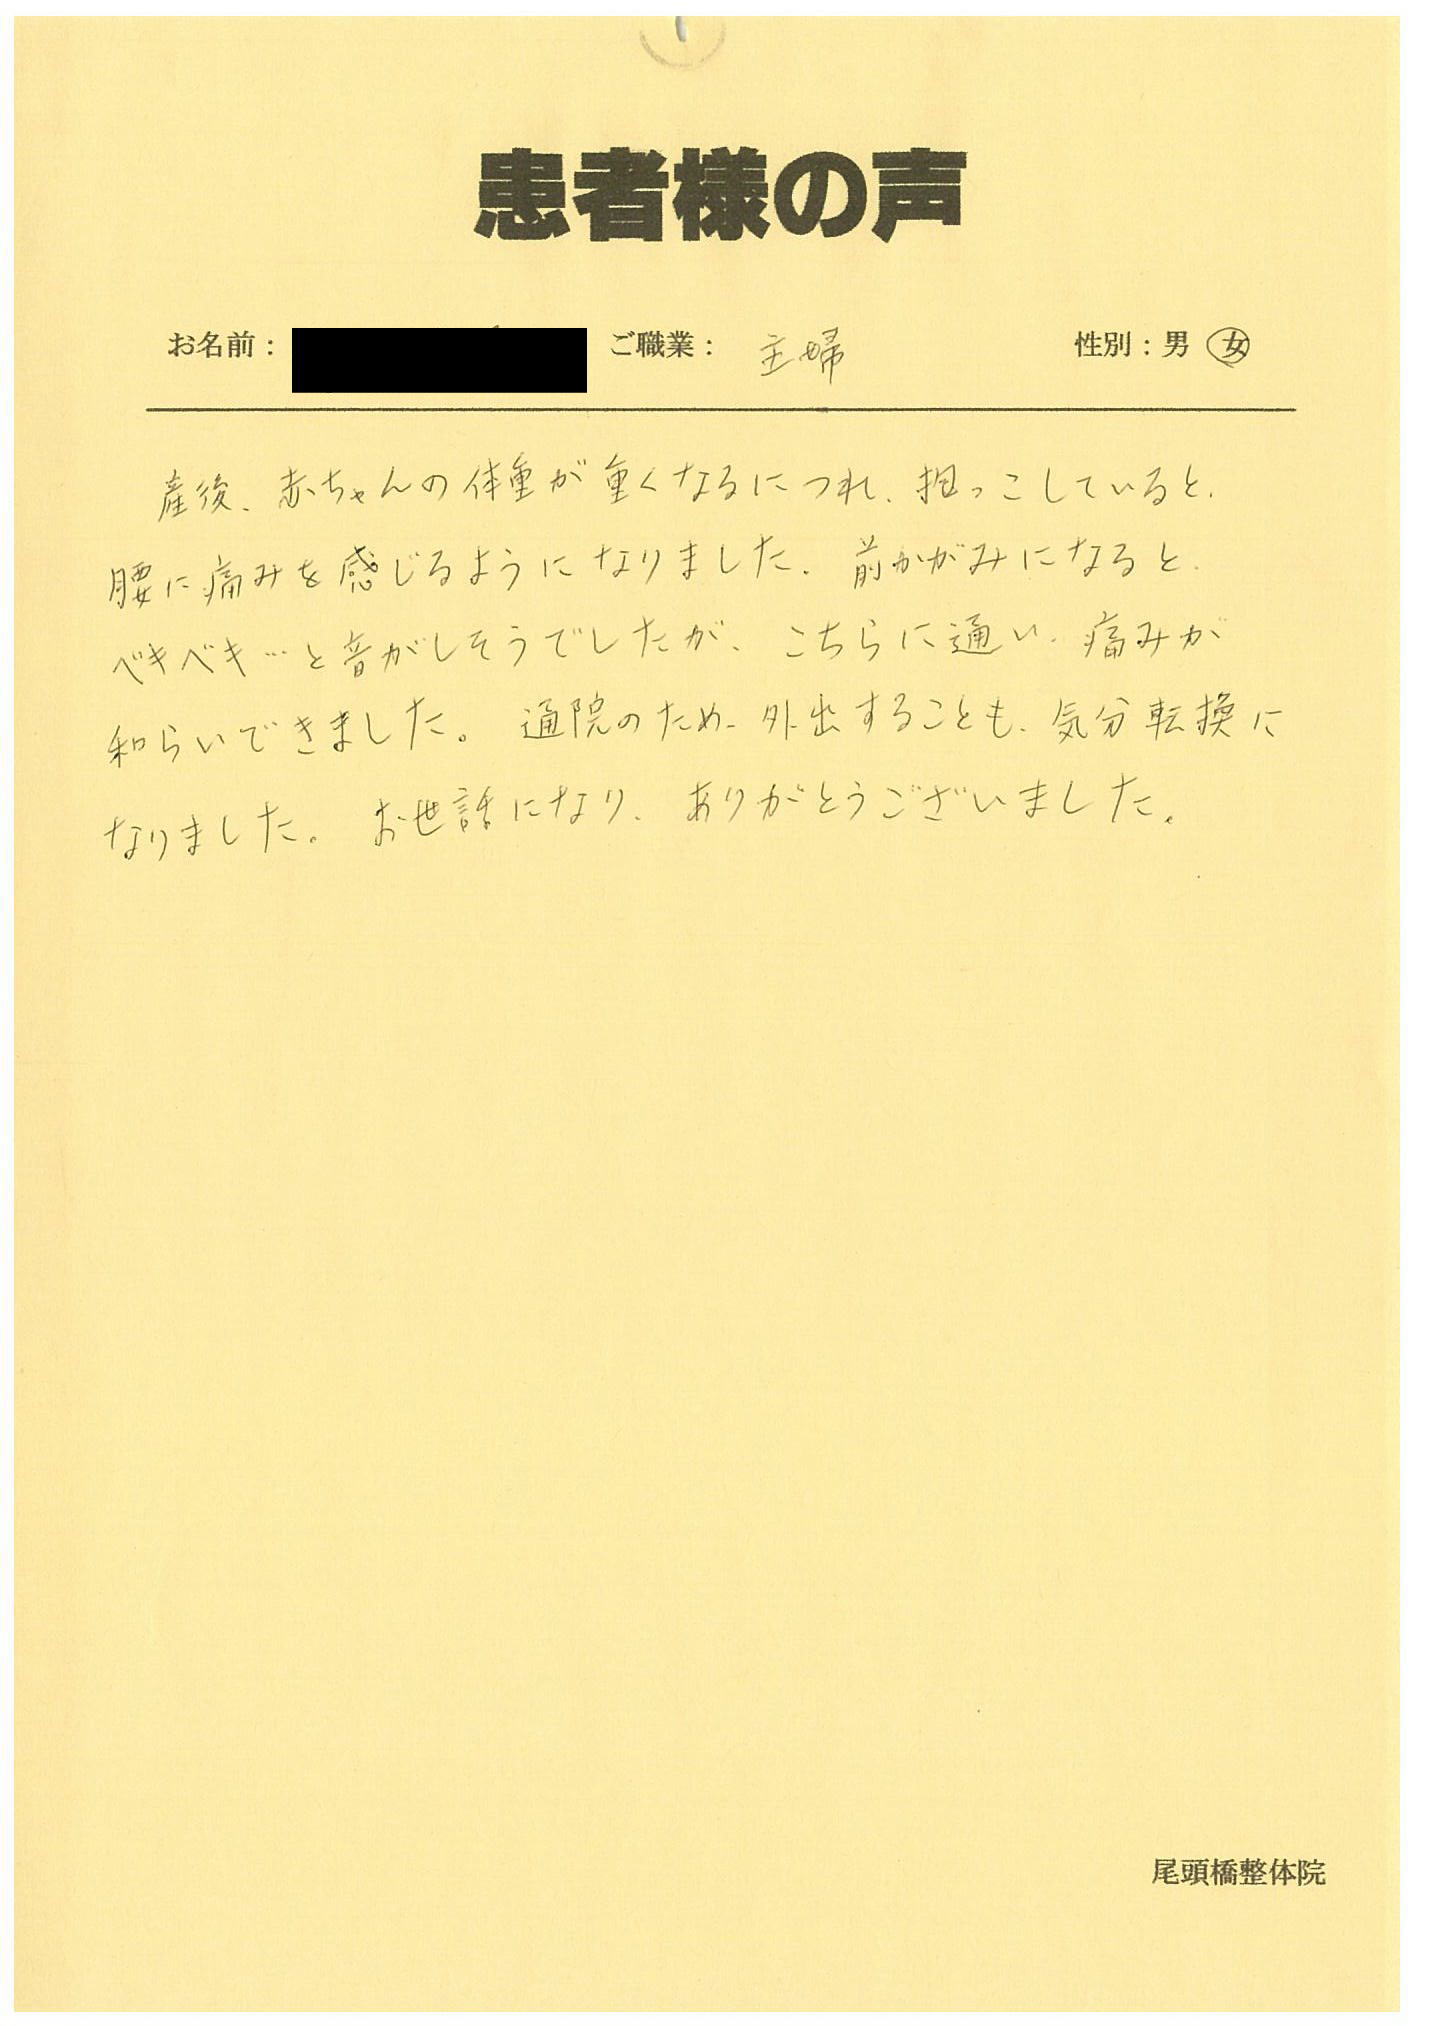 患者様の声
お名前： ご職業： 主婦 性別：男 女
産後、赤ちゃんの体重が重くなるにつれ、抱っこしていると、
腰に痛みを感じるようになりました。前かがみになると、
ベキベキ…と音がしそうでしたが、こちらに通い、痛みが
和らいできました。通院のため、外出することも、気分転換に
なりました。お世話になり、ありがとうございました。
尾頭橋整体院